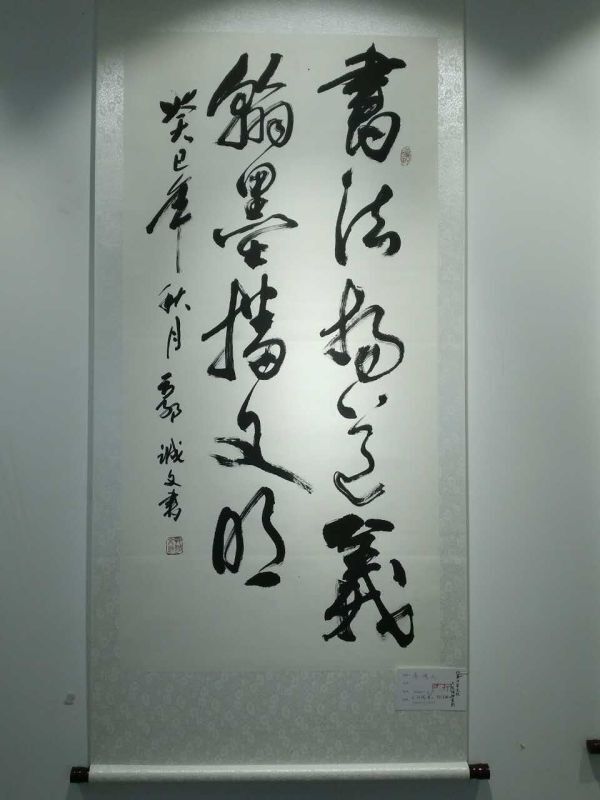 書法揚道義
翰墨播文明
癸巳年 秋月 誠文書